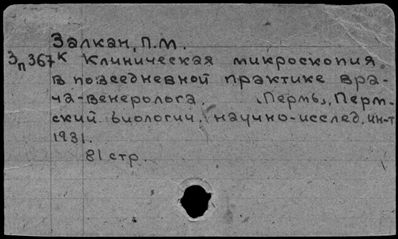 Залкан, П.М.
Зп367к Клиническая микроскопия
в повседневной практике вра-
ча-венеролога. (Пермь), Перм-
ский биологич. научно-исслед. ин-т
1931.
81 стр.